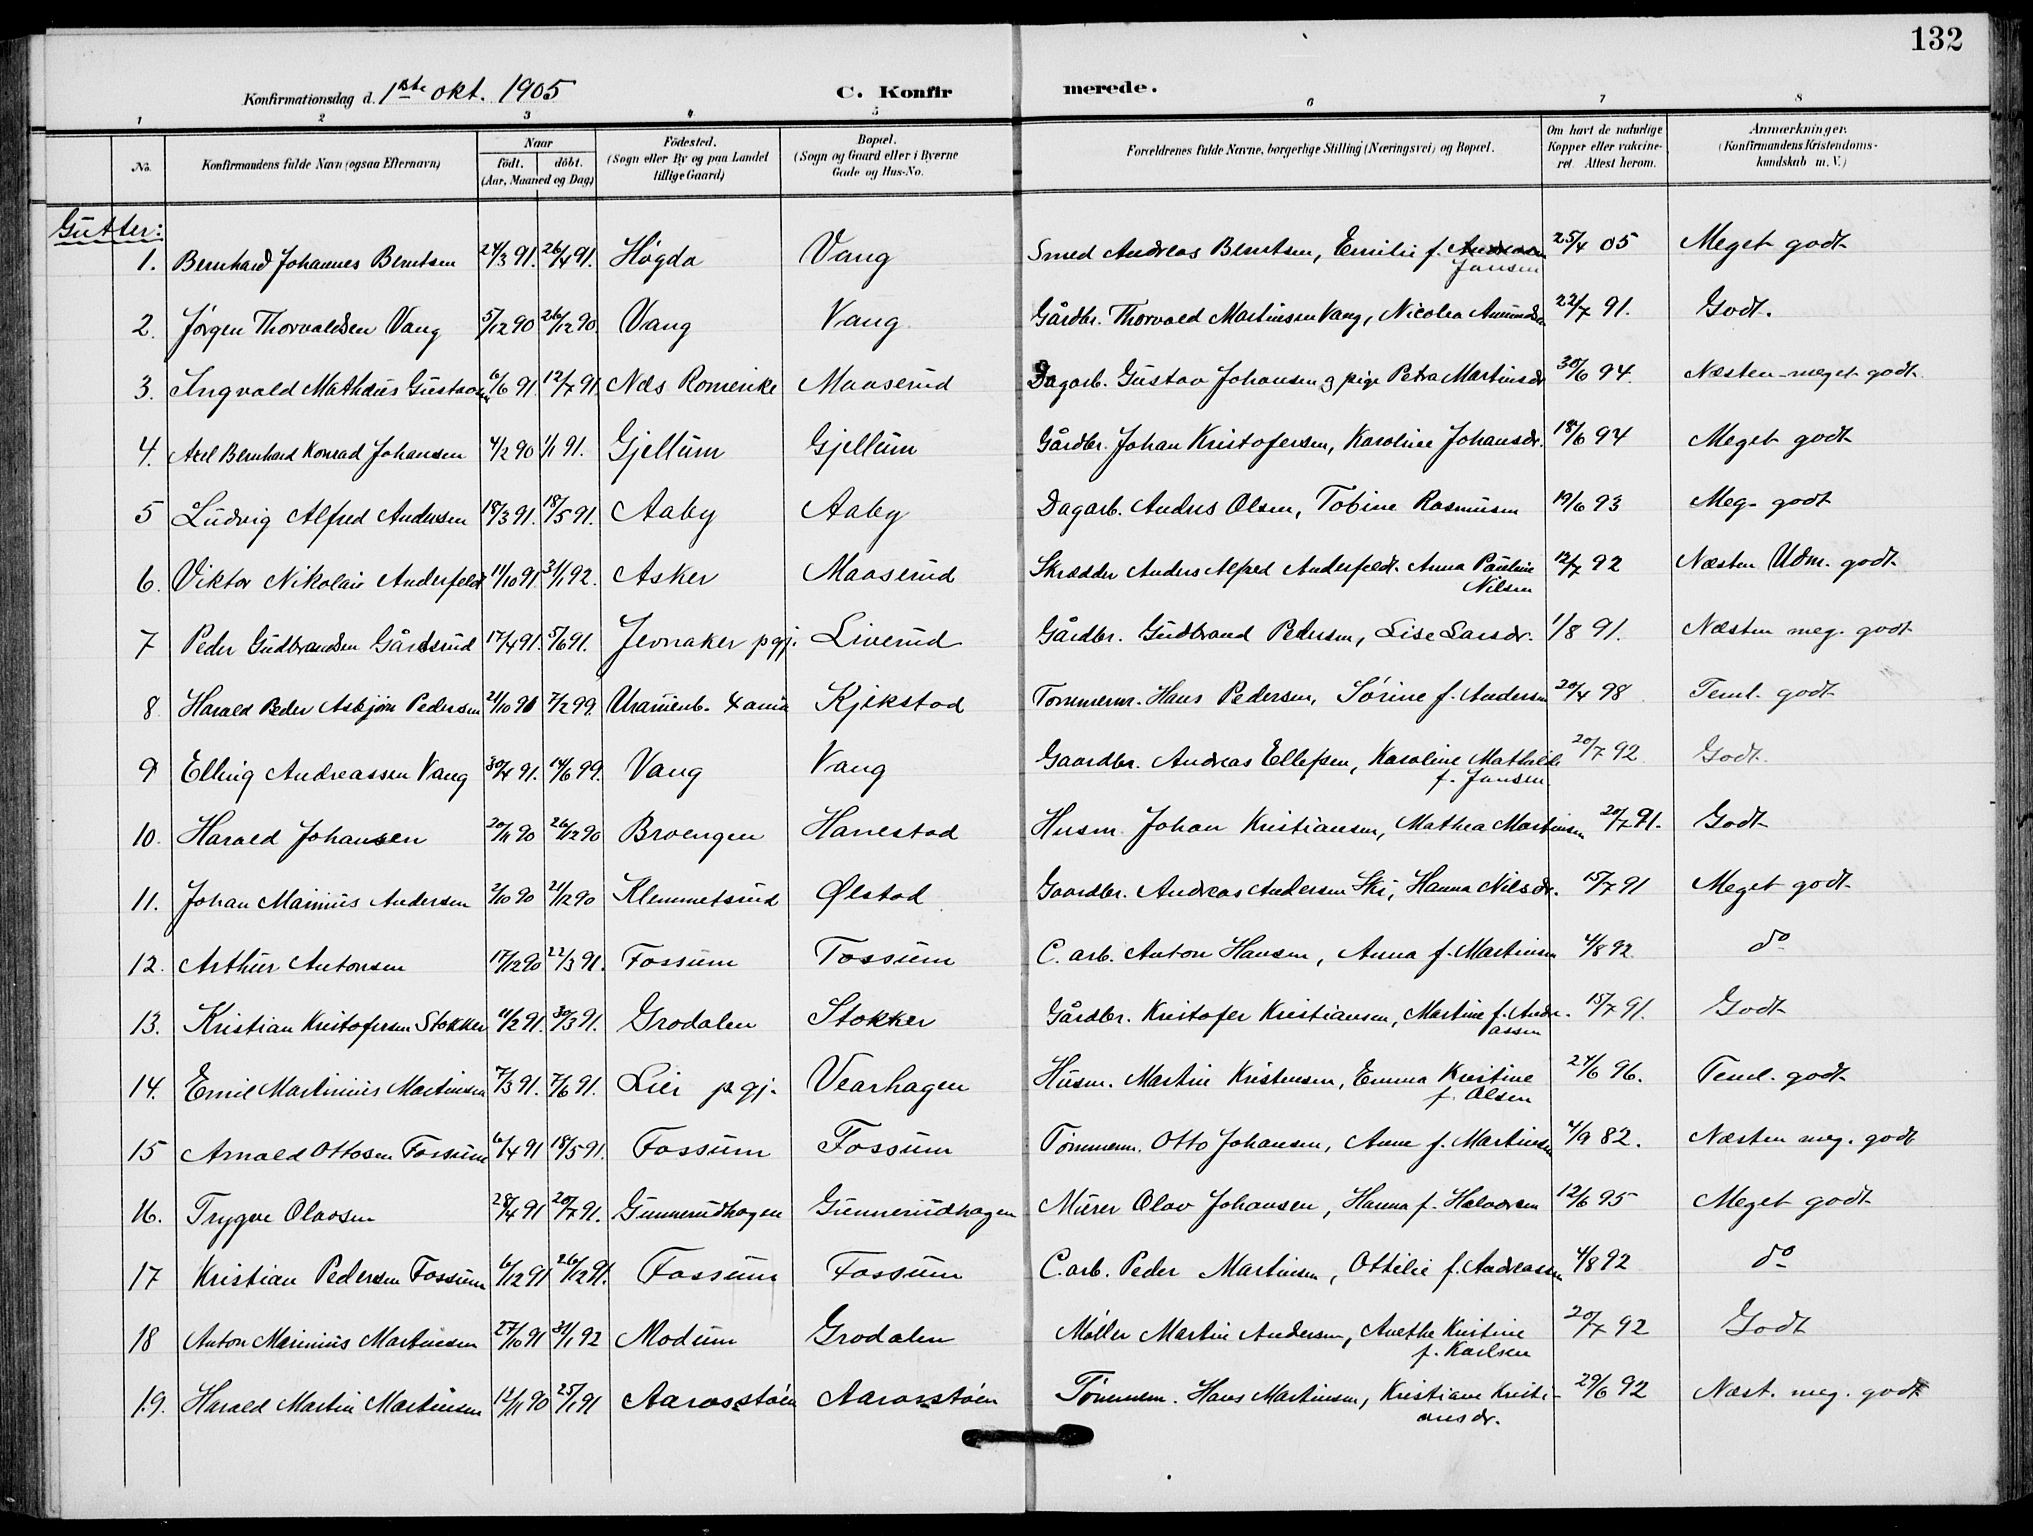 132
Konfirmationsdag d. 1ste okt. 1905 C. Konfirmerede.
1 2 3 4 5 6 7 8
No. Konfirmandens fulde Navn (ogsaa Efternavn) Naar födt. döbt. (Aar, Maaned og Dag) Födested. (Sogn eller By og paa Landet tillige Gaard) Bopæl. (Sogn og Gaard eller i Byerne Gade og Hus-No. Forældrenes fulde Navne, borgerlige Stilling (Næringsvei) og Bopæl. Om havt de naturlige Kopper eller vaccineret. Attest herom. Anmærkninger. (Konfirmandens Kristendomskundskab m. V.)
Gutter:
1. Bernhard Johannes Berntsen 24/3 91. 26/4 91. Högda Vang Smed Andreas Berntsen, Emilie f. Jansen 25/4 05 Meget godt
2. Jørgen Thorvaldsen Vang 5/12 90 26/12 90 Vang Vang Gårdbr. Thorvald Martinsen Vang, Nicolea Amundsen 22/7 91. Godt.
3. Ingvald Mathæus Gustavsen 6/6 91. 12/7 91. Næs Romerike Maaserud Dagarb. Gustav Johansen og pige Petra Martinsdr 30/6 94. Næsten meget godt.
4. Axel Bernhard Konrad Johansen 4/2 90 1/1 91. Gjellum Gjellum Gårdbr. Johan Kristofersen, Karoline Johansdr. 18/6 94 Meget godt
5 Ludvig Alfred Andersen 18/3 91. 18/5 91. Aaby Aaby Dagarb. Anders Olsen, Tobine Rasmusen 19/6 93 Meg. godt
6. Viktor Nikolai Anderfeldt 11/10 91. 31/1 92. Asker Maaserud Skrædder Anders Alfred Anderfeldt. Anna Pauline Nilsen 12/7 92 Næsten Udm. godt
7 Peder Gudbrandsen Gårdsrud 17/4 91. 5/6 91. Jevnaker pgj. Liverud Gårdbr. Gudbrand Pedersen, Lise Larsdr. 1/8 91. Næsten meg. godt
8 Harald Peder Asbjørn Pedersen 21/10 91 7/2 99. Uranienb. Xania Kjekstad Tømmerm. Hans Pedersen, Sørine f. Andersen 20/4 98 Teml. godt
9 Elling Andreassen Vang 30/4 91. 14/6 99. Vang Vang Gaardbr. Andreas Ellefsen, Karoline Mathilde f. Jansen. 20/7 92. Godt.
10. Harald Johansen 20/11 90 26/12 90 Broengen Hanestad Husm. Johan Kristiansen, Mathea Martinsen 20/7 91. Godt
11. Johan Marinius Andersen 2/10 90 21/12 90 Klemmetsrud Ølstad Gaardbr. Andreas Andersen Ski, Hanna Nilsdr. 15/7 91 Meget godt
12. Arthur Antonsen 17/12 90 22/3 91. Fossum Fossum C. arb. Anton Hansen, Anna f. Martinsen 4/8 92. do
13. Kristian Kristofersen Stokker 11/2 91. 30/3 91. Grodalen Stokker Gårdbr. Kristofer Kristiansen, Martine f. Andreassen 15/7 91. Godt
14. Emil Martinius Martinsen 7/3 91. 7/6 91. Lier pgj. Vearhagen Husm. Martin Kristensen, Emma Kristine f. Olsen 24/6 96. Teml. godt
15 Arnold Ottosen Fossum 6/4 91 18/5 91. Fossum Fossum Tømmerm. Otto Johansen, Anne f. Martinsen 4/9 82. Næsten meg. godt
16. Trygve Olavsen 28/4 91 20/7 91. Gunnerudhagen Gunnerudhagen Murer Olav Johansen, Hanna f. Halvorsen 12/6 95 Meget godt
17 Kristian Pedersen Fossum 6/12 91 26/12 91. Fossum Fossum C. arb. Peder Martinsen, Ottilie f. Andreassen 4/8 92 do
18 Anton Marinius Martinsen 27/10 91 31/1 92 Modum Grodalen Møller Martin Andersen, Anethe Kristine f. Karlsen 20/7 92 Godt
19. Harald Martin Martinsen 12/11 90 25/1 91 Aarosstøen Aarosstøen Tømmerm. Hans Martinsen, Kristiane Kristiansdr. 29/6 92 Næst. meg. godt